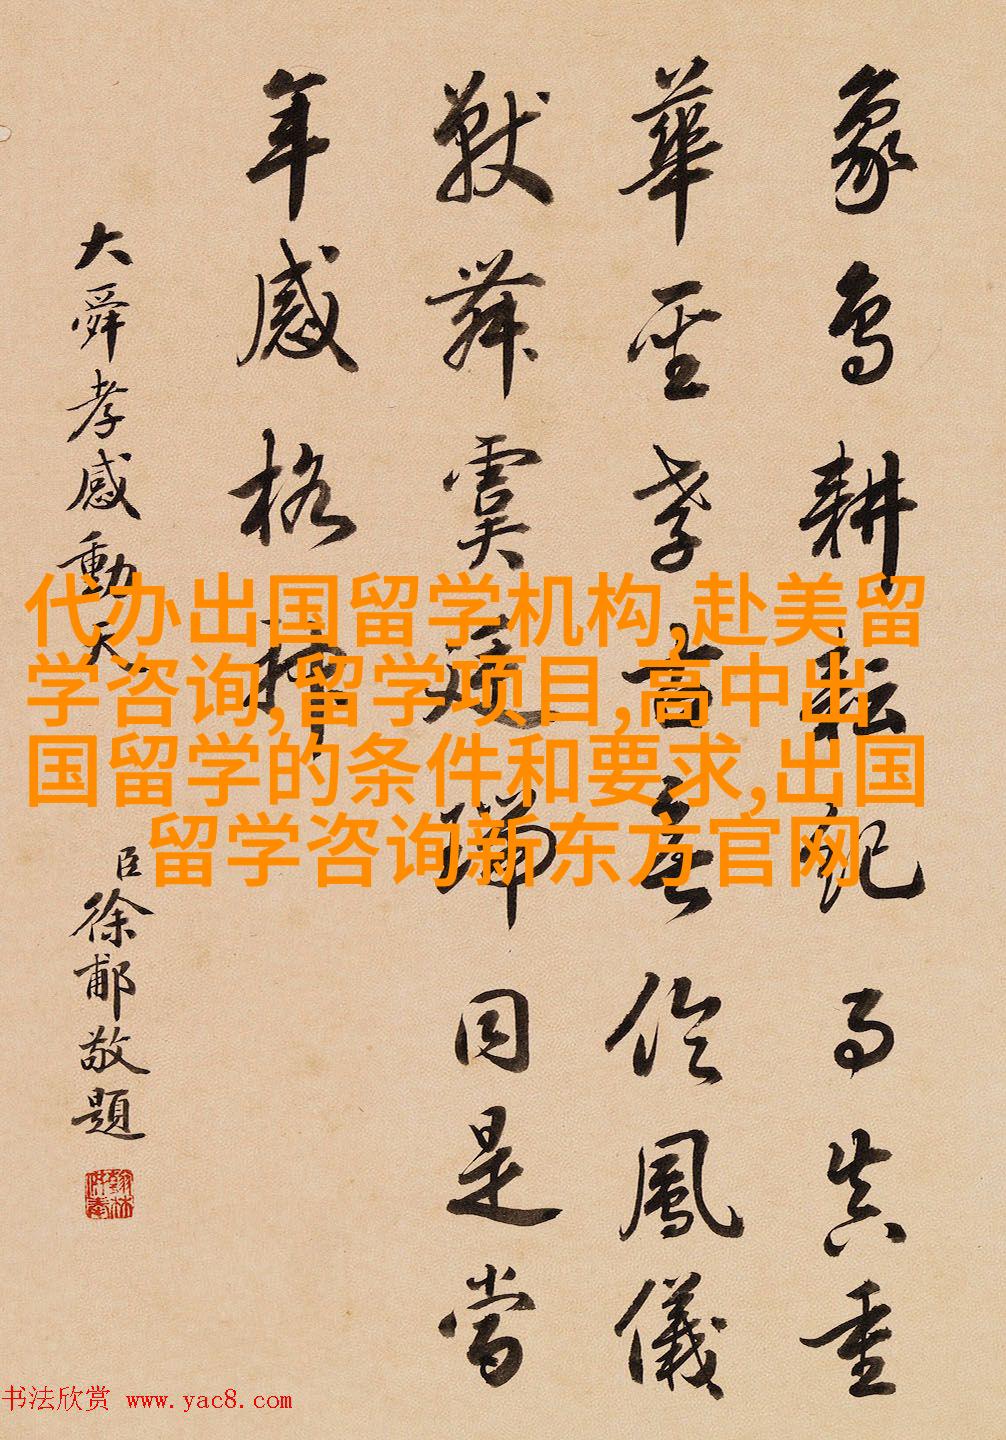 象鳥耕耘紀事真重
華聖孝古無倫鳳儀
獸舞虞廷瑞同是當
年感格神
大舜孝感動天
臣徐郙敬題
翰林供奉
代办出国留学机构,赴美留
学咨询,留学项目,高中出
国留学的条件和要求,出国
留学咨询新东方官网
书法欣赏 www.yac8.com